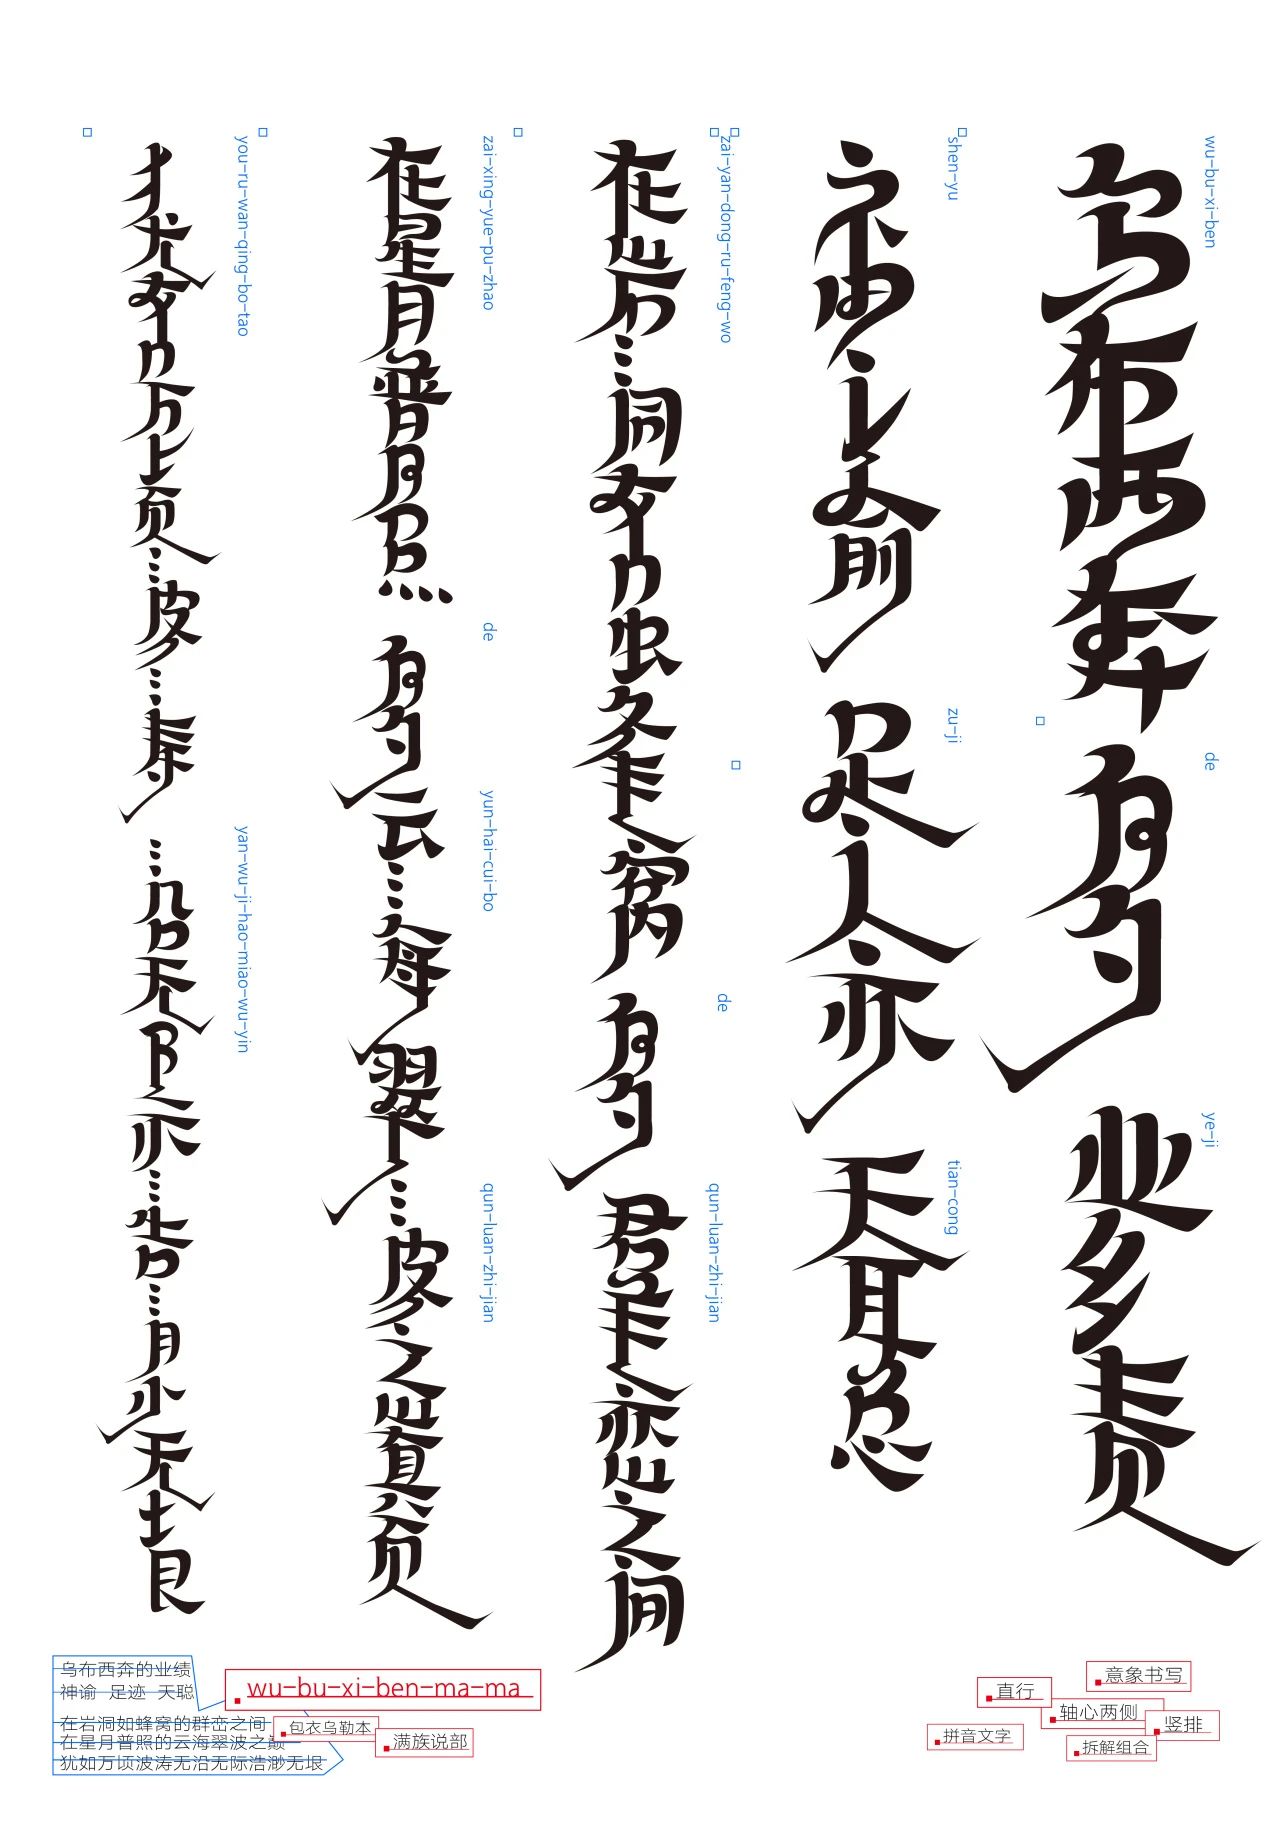 乌布西奔的业绩
wu-bu-xi-ben
de
ye-ji
神谕 足迹 天聪
shen-yu
zu-ji
tian-cong
在岩洞如蜂窝的群峦之间
zai-yan-dong-ru-feng-wo
de
qun-luan-zhi-jian
在星月普照的云海翠波之巅
zai-xing-yue-pu-zhao
de
yun-hai-cui-bo
qun-luan-zhi-jian
犹如万顷波涛沿无际浩渺无垠
you-ru-wan-qing-bo-tao
yan-wu-ji-hao-miao-wu-yin
乌布西奔的业绩
神谕 足迹 天聪
在岩洞如蜂窝的群峦之间
在星月普照的云海翠波之巅
犹如万顷波涛无沿无际浩渺无垠
wu-bu-xi-ben-ma-ma
包衣乌勒本
满族说部
意象书写
直行
轴心两侧
竖排
拼音文字
拆解组合